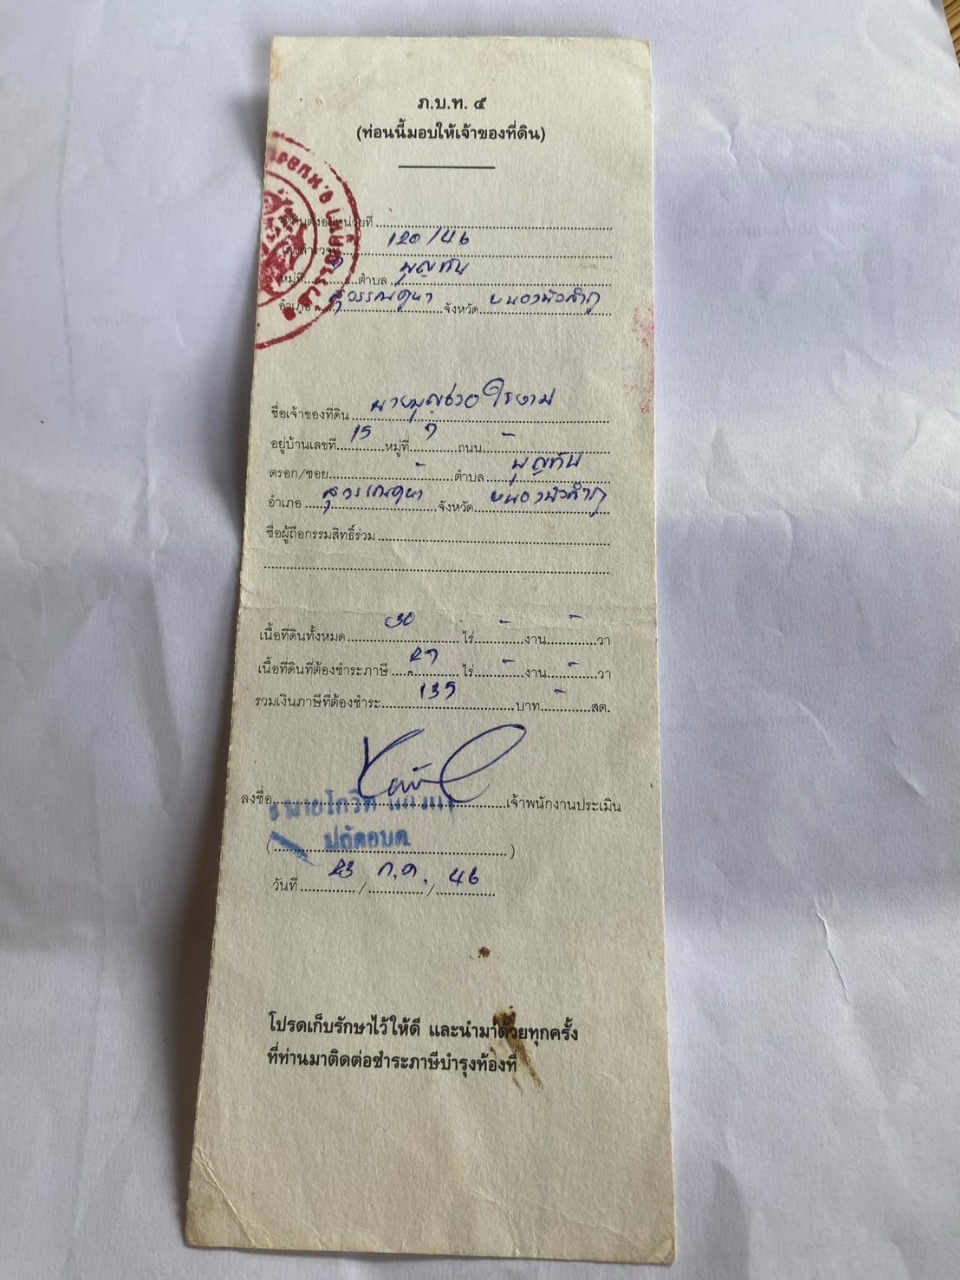 ภ.บ.ท. ๕
(ท่อนนี้มอบให้เจ้าของที่ดิน)
ที่ดินตั้งอยู่หน่วยที่
เลขสำรวจ 120/46
หมู่ที่ 7 ตำบล บุญทัน
อำเภอ สุวรรณคูหา จังหวัด หนองบัวลำภู
ชื่อเจ้าของที่ดิน นายบุญช่วย
อยู่บ้านเลขที่ 15 หมู่ที่ 7 ถนน -
ตรอก/ซอย - ตำบล บุญทัน
อำเภอ สุวรรณคูหา จังหวัด หนองบัวลำภู
ชื่อผู้ถือกรรมสิทธิ์ร่วม
เนื้อที่ดินทั้งหมด 30 ไร่ - งาน - วา
เนื้อที่ดินที่ต้องชำระภาษี 27 ไร่ - งาน - วา
รวมเงินภาษีที่ต้องชำระ 135 บาท - สต.
ลงชื่อ เจ้าพนักงานประเมิน
นายโกวิท
( ปลัดอบต. )
วันที่ 23 / ก.ค. / 46
โปรดเก็บรักษาไว้ให้ดี และนำมาด้วยทุกครั้ง
ที่ท่านมาติดต่อชำระภาษีบำรุงท้องที่